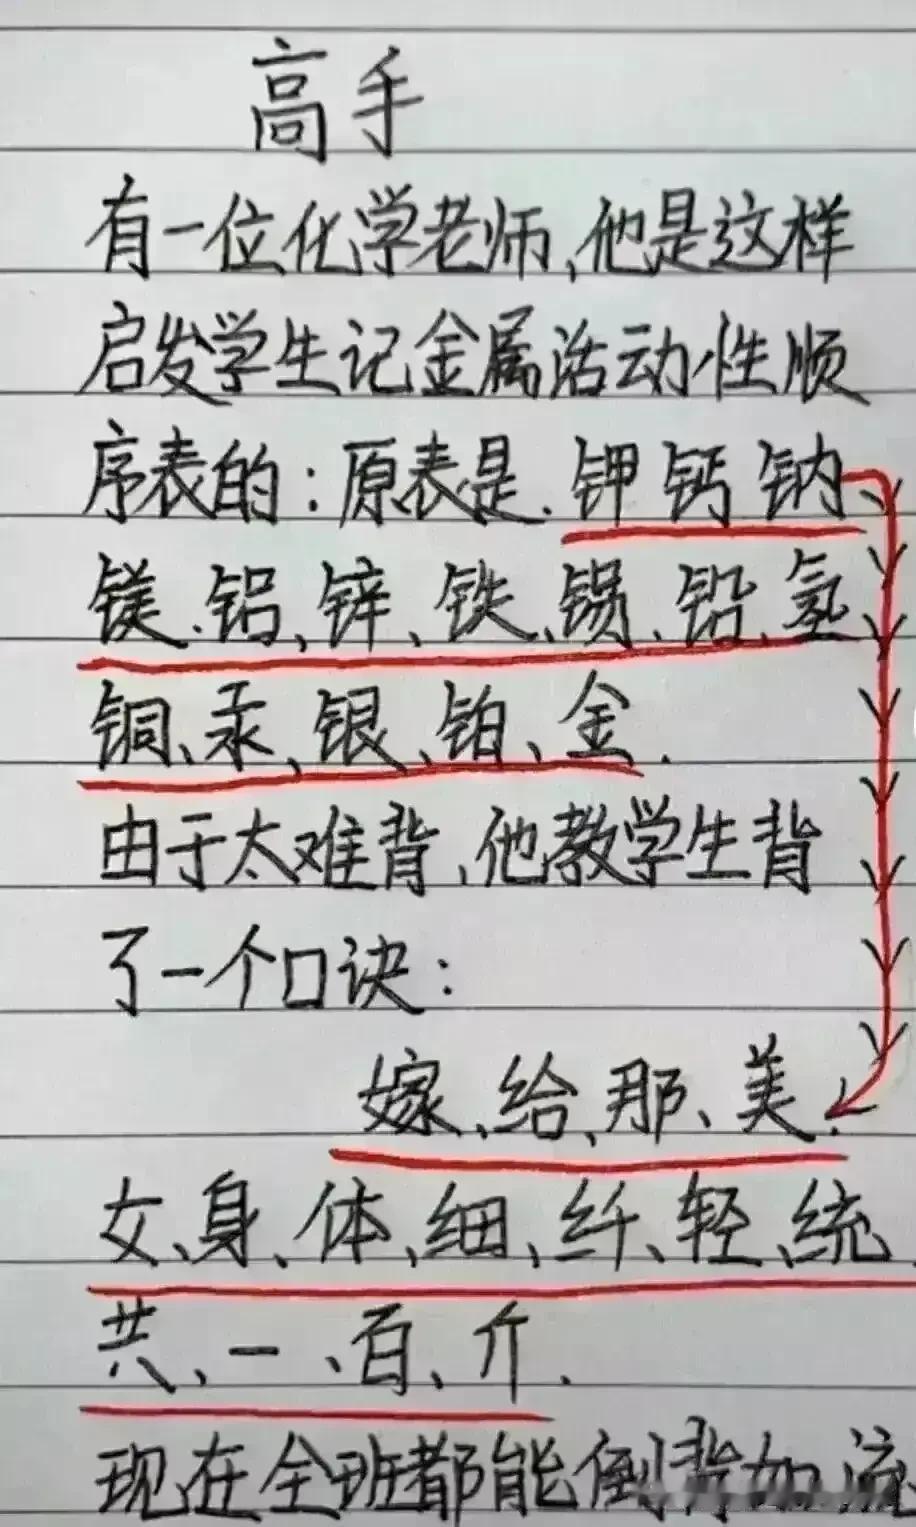 高手
有一位化学老师,他是这样
启发学生记金属活动性顺
序表的:原表是.钾钙钠
镁.铝、锌、铁、锡、铅、氢
铜、汞、银、铂、金.
由于太难背,他教学生背
了一个口诀:
嫁、给、那、美.
女、身、体、细、纤、轻、统
共、一、百、斤.
现在全班都能倒背如流